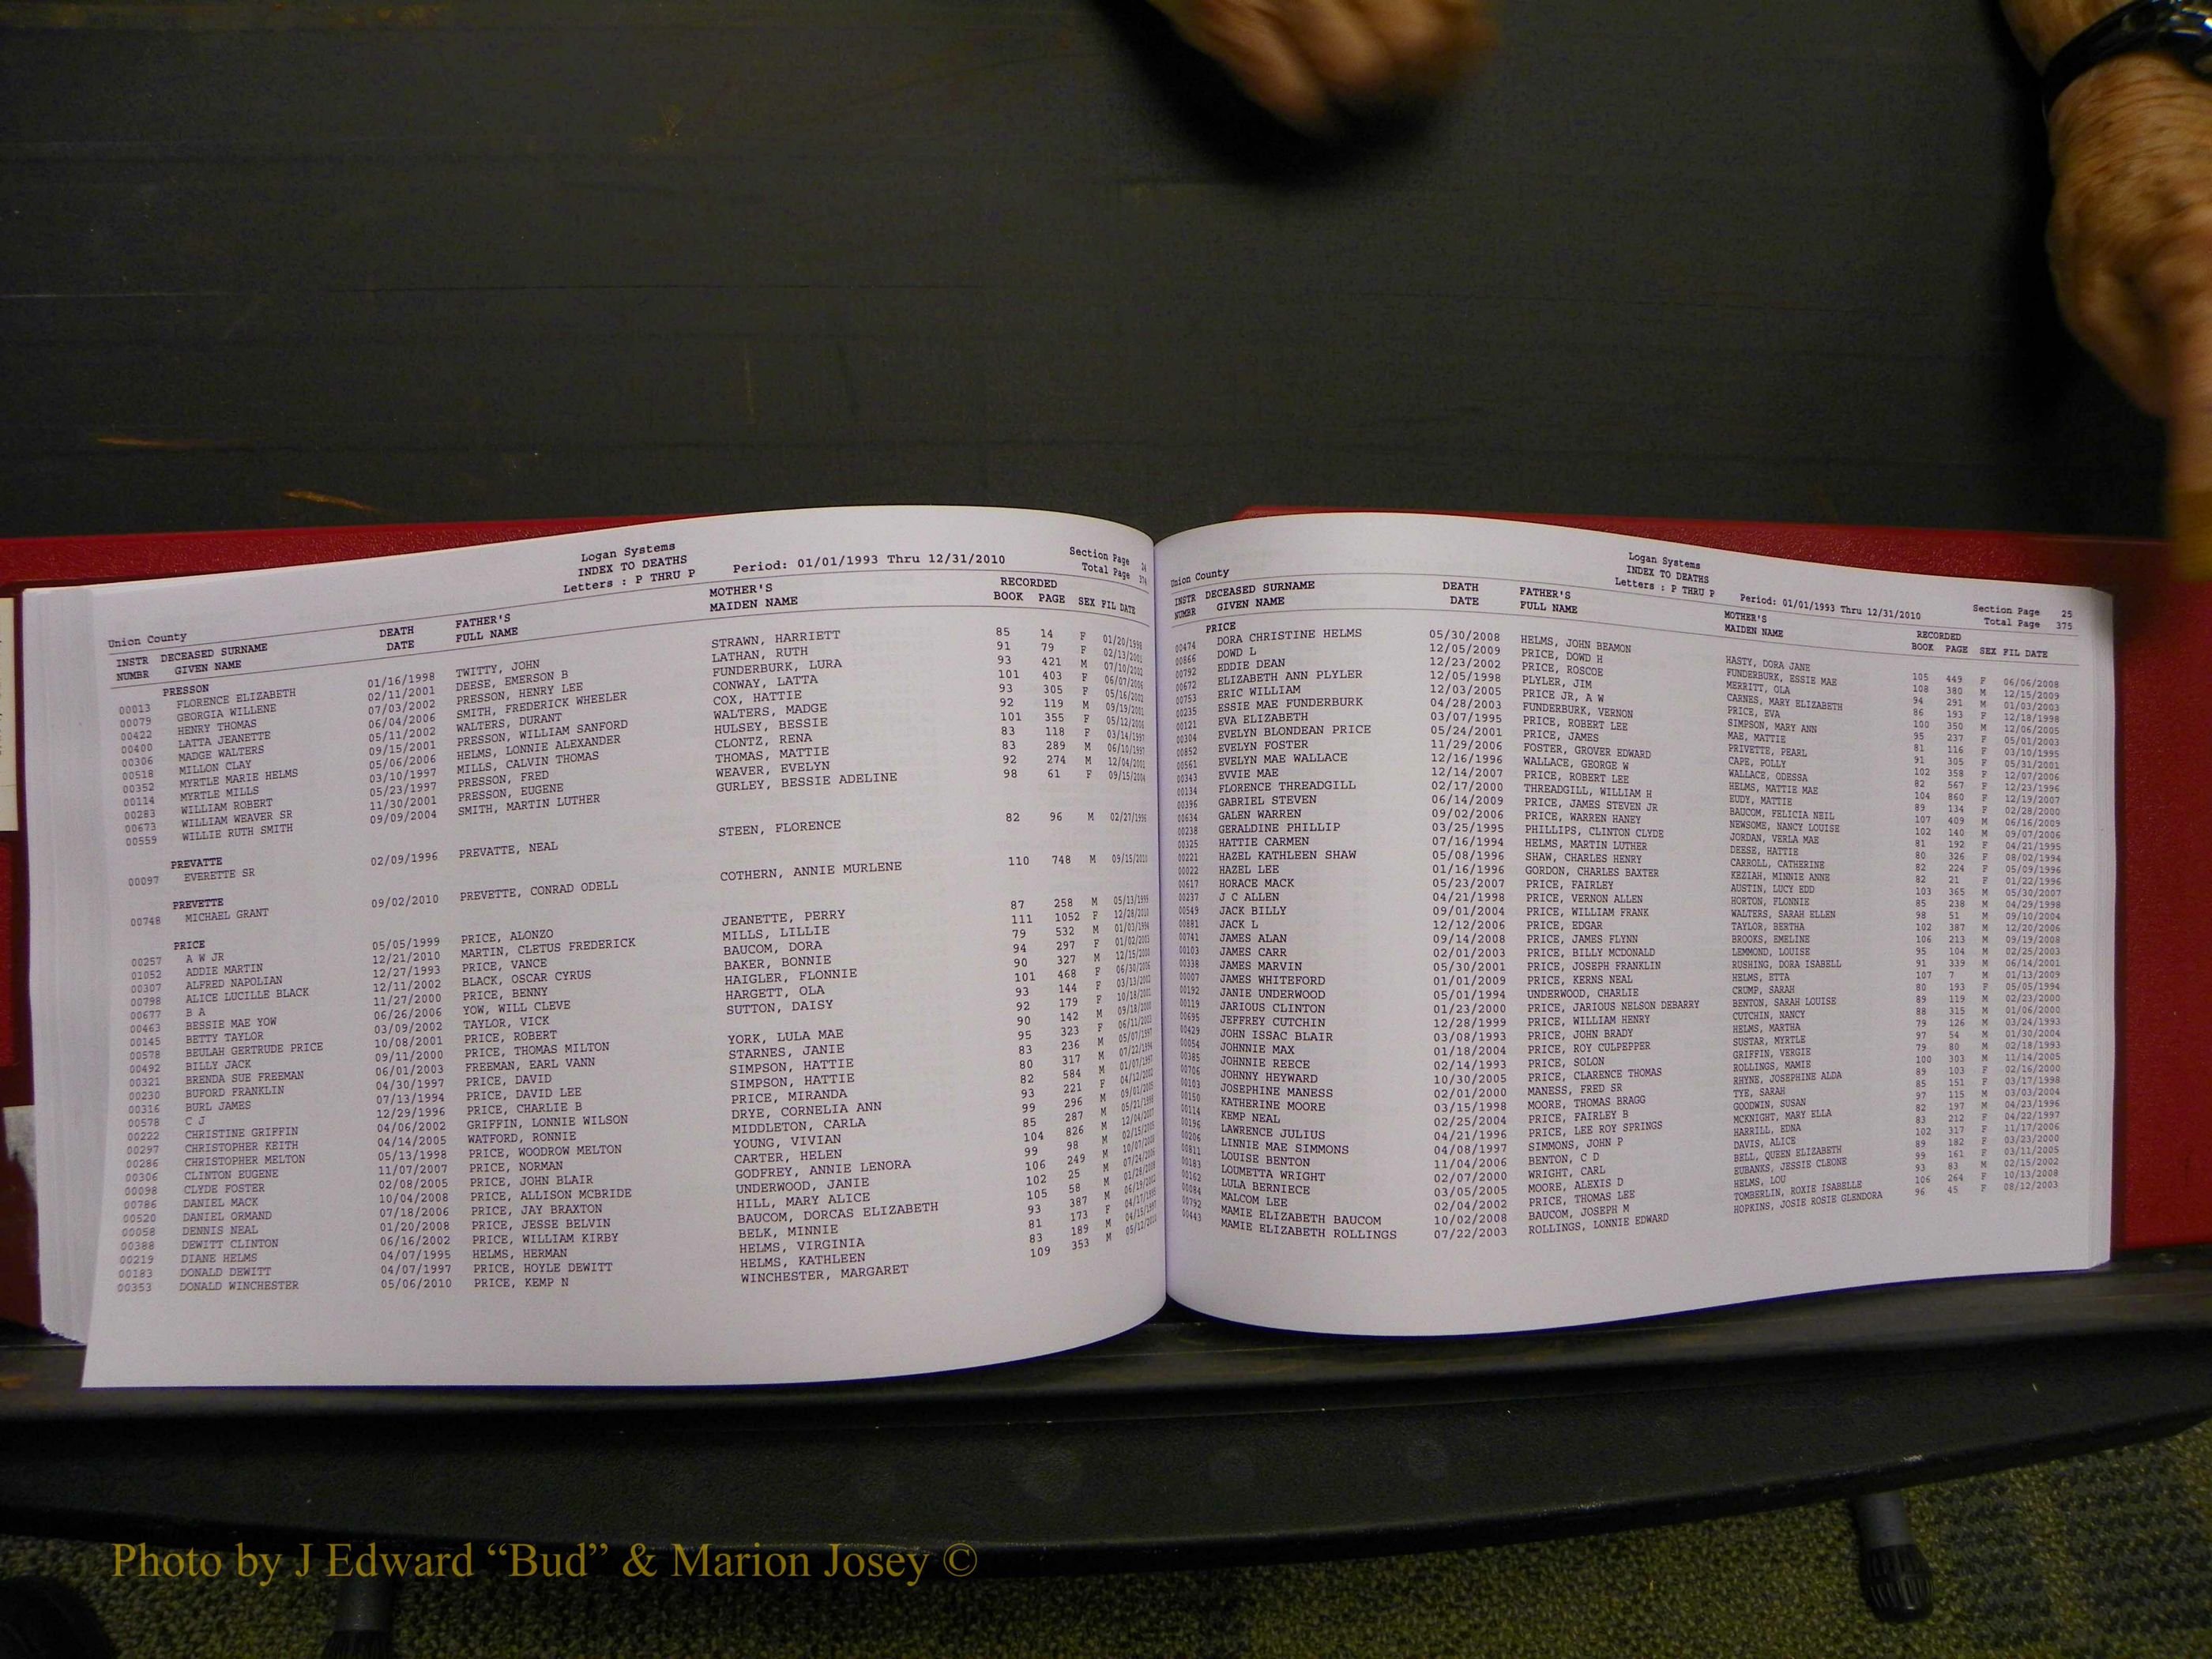 Logan Systems
INDEX TO DEATHS
Letters : P THRU P Period: 01/01/1993 Thru 12/31/2010
Section Page 24
Total Page 374
Union County
INSTR DECEASED SURNAME DEATH FATHER'S MOTHER'S RECORDED
NUMBR GIVEN NAME DATE FULL NAME MAIDEN NAME BOOK PAGE SEX FIL DATE
PRESSON
00013 FLORENCE ELIZABETH 01/16/1998 TWITTY, JOHN STRAWN, HARRIETT 85 14 F 01/20/1998
00079 GEORGIA WILLENE 02/11/2001 DEESE, EMERSON B LATHAN, RUTH 91 79 F 02/13/2001
00422 HENRY THOMAS 07/03/2002 PRESSON, HENRY LEE FUNDERBURK, LURA 93 421 M 07/10/2002
00400 LATTA JEANETTE 06/04/2006 SMITH, FREDERICK WHEELER CONWAY, LATTA 101 403 F 06/07/2006
00306 MADGE WALTERS 05/11/2002 WALTERS, DURANT COX, HATTIE 93 305 F 05/16/2002
00518 MILLON CLAY 09/15/2001 PRESSON, WILLIAM SANFORD WALTERS, MADGE 92 119 M 09/19/2001
00352 MYRTLE MARIE HELMS 05/06/2006 HELMS, LONNIE ALEXANDER HULSEY, BESSIE 101 355 F 05/12/2006
00114 MYRTLE MILLS 03/10/1997 MILLS, CALVIN THOMAS CLONTZ, RENA 83 118 F 03/14/1997
00283 WILLIAM ROBERT 05/23/1997 PRESSON, FRED THOMAS, MATTIE 83 289 M 06/10/1997
00673 WILLIAM WEAVER SR 11/30/2001 PRESSON, EUGENE WEAVER, EVELYN 92 274 M 12/04/2001
00559 WILLIE RUTH SMITH 09/09/2004 SMITH, MARTIN LUTHER GURLEY, BESSIE ADELINE 98 61 F 09/15/2004
PREVATTE
00097 EVERETTE SR 02/09/1996 PREVATTE, NEAL STEEN, FLORENCE 82 96 M 02/27/1996
PREVETTE
00748 MICHAEL GRANT 09/02/2010 PREVETTE, CONRAD ODELL COTHERN, ANNIE MURLENE 110 748 M 09/15/2010
PRICE
00257 A W JR 05/05/1999 PRICE, ALONZO JEANETTE, PERRY 87 258 M 05/13/1999
01052 ADDIE MARTIN 12/21/2010 MARTIN, CLETUS FREDERICK MILLS, LILLIE 111 1052 F 12/28/2010
00307 ALFRED NAPOLIAN 12/27/1993 PRICE, VANCE BAUCOM, DORA 79 532 M 01/03/1994
00798 ALICE LUCILLE BLACK 12/11/2002 BLACK, OSCAR CYRUS BAKER, BONNIE 94 297 F 01/02/2003
00677 B A 11/27/2000 PRICE, BENNY HAIGLER, FLONNIE 90 327 M 12/15/2000
00463 BESSIE MAE YOW 06/26/2006 YOW, WILL CLEVE HARGETT, OLA 101 468 F 06/30/2006
00145 BETTY TAYLOR 03/09/2002 TAYLOR, VICK SUTTON, DAISY 93 144 F 03/13/2002
00578 BEULAH GERTRUDE PRICE 10/08/2001 PRICE, ROBERT 92 179 F 10/18/2001
00492 BILLY JACK 09/11/2000 PRICE, THOMAS MILTON YORK, LULA MAE 90 142 M 09/18/2000
00321 BRENDA SUE FREEMAN 06/01/2003 FREEMAN, EARL VANN STARNES, JANIE 95 323 F 06/11/2003
00230 BUFORD FRANKLIN 04/30/1997 PRICE, DAVID SIMPSON, HATTIE 83 236 M 05/07/1997
00316 BURL JAMES 07/13/1994 PRICE, DAVID LEE SIMPSON, HATTIE 80 317 M 07/22/1994
00578 C J 12/29/1996 PRICE, CHARLIE B PRICE, MIRANDA 82 584 M 01/07/1997
00222 CHRISTINE GRIFFIN 04/06/2002 GRIFFIN, LONNIE WILSON DRYE, CORNELIA ANN 93 221 F 04/12/2002
00297 CHRISTOPHER KEITH 04/14/2005 WATFORD, RONNIE MIDDLETON, CARLA 99 296 M 09/01/2005
00286 CHRISTOPHER MELTON 05/13/1998 PRICE, WOODROW MELTON YOUNG, VIVIAN 85 287 M 05/21/1998
00306 CLINTON EUGENE 11/07/2007 PRICE, NORMAN CARTER, HELEN 104 826 M 12/04/2007
00098 CLYDE FOSTER 02/08/2005 PRICE, JOHN BLAIR GODFREY, ANNIE LENORA 99 98 M 02/15/2005
00786 DANIEL MACK 10/04/2008 PRICE, ALLISON MCBRIDE UNDERWOOD, JANIE 106 249 M 10/07/2008
00520 DANIEL ORMAND 07/18/2006 PRICE, JAY BRAXTON HILL, MARY ALICE 102 25 M 07/24/2006
00058 DENNIS NEAL 01/20/2008 PRICE, JESSE BELVIN BAUCOM, DORCAS ELIZABETH 105 58 M 01/28/2008
00388 DEWITT CLINTON 06/16/2002 PRICE, WILLIAM KIRBY BELK, MINNIE 93 387 M 06/19/2002
00219 DIANE HELMS 04/07/1995 HELMS, HERMAN HELMS, VIRGINIA 81 173 F 04/17/1995
00183 DONALD DEWITT 04/07/1997 PRICE, HOYLE DEWITT HELMS, KATHLEEN 83 189 M 04/15/1997
00353 DONALD WINCHESTER 05/06/2010 PRICE, KEMP N WINCHESTER, MARGARET 109 353 M 05/12/2010
Logan Systems
INDEX TO DEATHS
Letters : P THRU P Period: 01/01/1993 Thru 12/31/2010
Section Page 25
Total Page 375
Union County
INSTR DECEASED SURNAME DEATH FATHER'S MOTHER'S RECORDED
NUMBR GIVEN NAME DATE FULL NAME MAIDEN NAME BOOK PAGE SEX FIL DATE
PRICE
00474 DORA CHRISTINE HELMS 05/30/2008 HELMS, JOHN BEAMON HASTY, DORA JANE 105 449 F 06/06/2008
00866 DOWD L 12/05/2009 PRICE, DOWD H FUNDERBURK, ESSIE MAE 108 380 M 12/15/2009
00792 EDDIE DEAN 12/23/2002 PRICE, ROSCOE MERRITT, OLA 94 291 M 01/03/2003
00672 ELIZABETH ANN PLYLER 12/05/1998 PLYLER, JIM CARNES, MARY ELIZABETH 86 193 F 12/18/1998
00753 ERIC WILLIAM 12/03/2005 PRICE JR, A W PRICE, EVA 100 350 M 12/06/2005
00235 ESSIE MAE FUNDERBURK 04/28/2003 FUNDERBURK, VERNON SIMPSON, MARY ANN 95 237 F 05/01/2003
00121 EVA ELIZABETH 03/07/1995 PRICE, ROBERT LEE MAE, MATTIE 81 116 F 03/10/1995
00304 EVELYN BLONDEAN PRICE 05/24/2001 PRICE, JAMES PRIVETTE, PEARL 91 305 F 05/31/2001
00852 EVELYN FOSTER 11/29/2006 FOSTER, GROVER EDWARD CAPE, POLLY 102 358 F 12/07/2006
00561 EVELYN MAE WALLACE 12/16/1996 WALLACE, GEORGE W WALLACE, ODESSA 82 567 F 12/23/1996
00343 EVVIE MAE 12/14/2007 PRICE, ROBERT LEE HELMS, MATTIE MAE 104 860 F 12/19/2007
00134 FLORENCE THREADGILL 02/17/2000 THREADGILL, WILLIAM H EUDY, MATTIE 89 134 F 02/28/2000
00396 GABRIEL STEVEN 06/14/2009 PRICE, JAMES STEVEN JR BAUCOM, FELICIA NEIL 107 409 M 06/16/2009
00634 GALEN WARREN 09/02/2006 PRICE, WARREN HANEY NEWSOME, NANCY LOUISE 102 140 M 09/07/2006
00238 GERALDINE PHILLIP 03/25/1995 PHILLIPS, CLINTON CLYDE JORDAN, VERLA MAE 81 192 F 04/21/1995
00325 HATTIE CARMEN 07/16/1994 HELMS, MARTIN LUTHER DEESE, HATTIE 80 326 F 08/02/1994
00221 HAZEL KATHLEEN SHAW 05/08/1996 SHAW, CHARLES HENRY CARROLL, CATHERINE 82 224 F 05/09/1996
00022 HAZEL LEE 01/16/1996 GORDON, CHARLES BAXTER KEZIAH, MINNIE ANNE 82 21 F 01/22/1996
00617 HORACE MACK 05/23/2007 PRICE, FAIRLEY AUSTIN, LUCY EDD 103 365 M 05/30/2007
00237 J C ALLEN 04/21/1998 PRICE, VERNON ALLEN HORTON, FLONNIE 85 238 M 04/29/1998
00549 JACK BILLY 09/01/2004 PRICE, WILLIAM FRANK WALTERS, SARAH ELLEN 98 51 M 09/10/2004
00881 JACK L 12/12/2006 PRICE, EDGAR TAYLOR, BERTHA 102 387 M 12/20/2006
00741 JAMES ALAN 09/14/2008 PRICE, JAMES FLYNN BROOKS, EMELINE 106 213 M 09/19/2008
00103 JAMES CARR 02/01/2003 PRICE, BILLY MCDONALD LEMMOND, LOUISE 95 104 M 02/25/2003
00338 JAMES MARVIN 05/30/2001 PRICE, JOSEPH FRANKLIN RUSHING, DORA ISABELL 91 339 M 06/14/2001
00007 JAMES WHITEFORD 01/01/2009 PRICE, KERNS NEAL HELMS, ETTA 107 7 M 01/13/2009
00192 JANIE UNDERWOOD 05/01/1994 UNDERWOOD, CHARLIE CRUMP, SARAH 80 193 F 05/05/1994
00119 JARIOUS CLINTON 01/23/2000 PRICE, JARIOUS NELSON DEBARRY BENTON, SARAH LOUISE 89 119 M 02/23/2000
00695 JEFFREY CUTCHIN 12/28/1999 PRICE, WILLIAM HENRY CUTCHIN, NANCY 88 315 M 01/06/2000
00429 JOHN ISSAC BLAIR 03/08/1993 PRICE, JOHN BRADY HELMS, MARTHA 79 126 M 03/24/1993
00054 JOHNNIE MAX 01/18/2004 PRICE, ROY CULPEPPER SUSTAR, MYRTLE 97 54 M 01/30/2004
00385 JOHNNIE REECE 02/14/1993 PRICE, SOLON GRIFFIN, VERGIE 79 80 M 02/18/1993
00706 JOHNNY HEYWARD 10/30/2005 PRICE, CLARENCE THOMAS ROLLINGS, MAMIE 100 303 M 11/14/2005
00103 JOSEPHINE MANESS 02/01/2000 MANESS, FRED SR RHYNE, JOSEPHINE ALDA 89 103 F 02/16/2000
00150 KATHERINE MOORE 03/15/1998 MOORE, THOMAS BRAGG TYE, SARAH 85 151 F 03/17/1998
00114 KEMP NEAL 02/25/2004 PRICE, FAIRLEY B GOODWIN, SUSAN 97 115 M 03/03/2004
00196 LAWRENCE JULIUS 04/21/1996 PRICE, LEE ROY SPRINGS MCKNIGHT, MARY ELLA 82 197 M 04/23/1996
00206 LINNIE MAE SIMMONS 04/08/1997 SIMMONS, JOHN P HARRILL, EDNA 83 212 F 04/22/1997
00811 LOUISE BENTON 11/04/2006 BENTON, C D DAVIS, ALICE 102 317 F 11/17/2006
00183 LOUMETTA WRIGHT 02/07/2000 WRIGHT, CARL BELL, QUEEN ELIZABETH 89 182 F 03/23/2000
00162 LULA BERNIECE 03/05/2005 MOORE, ALEXIS D EUBANKS, JESSIE CLEONE 99 161 F 03/11/2005
00084 MALCOM LEE 02/04/2002 PRICE, THOMAS LEE HELMS, LOU 93 83 M 02/15/2002
00792 MAMIE ELIZABETH BAUCOM 10/02/2008 BAUCOM, JOSEPH M TOMBERLIN, ROXIE ISABELLE 106 264 F 10/13/2008
00443 MAMIE ELIZABETH ROLLINGS 07/22/2003 ROLLINGS, LONNIE EDWARD HOPKINS, JOSIE ROSIE GLENDORA 96 45 F 08/12/2003
Photo by J Edward “Bud” & Marion Josey ©